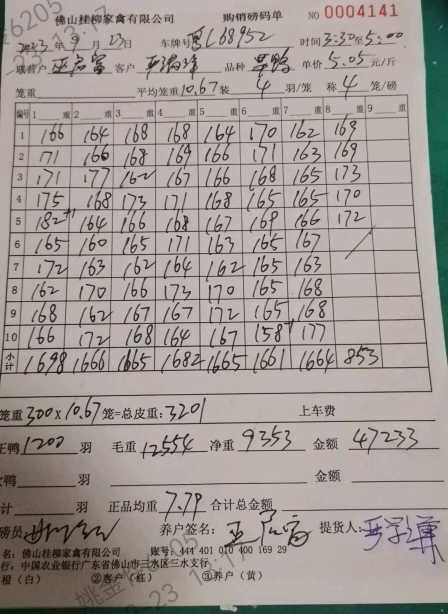 佛山桂柳家禽有限公司 购销磅码单 NO 0004141
2023年9月23日 车牌号 L68952 时间 3:30至5:00
联营户 客户 品种 单价 5.05元/斤
笼重 平均笼重10.67装 4羽/笼 称4笼/磅
编号 1 重 2 重 3 重 4 重 5 重 6 重 7 重 8 重 9 重
1 166 164 168 168 164 170 162 169
2 171 166 168 169 166 171 163 169
3 171 177 162 167 166 168 165 173
4 175 168 173 171 168 165 165 170
5 182 +1 164 166 168 167 168 166 172
6 165 160 165 171 163 165 167
7 172 163 162 164 162 165 163
8 162 170 166 173 170 165 168
9 168 162 167 167 172 165 168
10 166 172 168 164 167 158 177
小计 1698 1666 1665 1682 1665 1661 1664 853
笼重 300×10.67笼=总皮重:3201 上车费
正鸭1200羽 毛重12554 净重9353 金额47233
羽 金额
计 羽 正品均重7.79 合计总金额
磅员 养户签名: 提货人:
名:佛山桂柳家禽有限公司 账号:444 401 010 400 169 29
行:中国农业银行广东省佛山市三水区三水支行
根(白) ②客户(红) ③养户(黄)